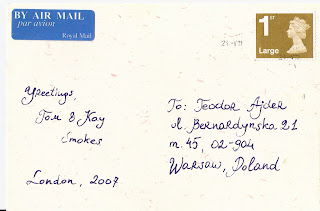 BY AIR MAIL
par avion
Royal Mail
1ST
Large
Greetings,
Tom & Kay
Smokes
London, 2007
To: Teodor Ajder
ul. Bernardyńska 21
m. 45, 02-904
Warsaw, Poland